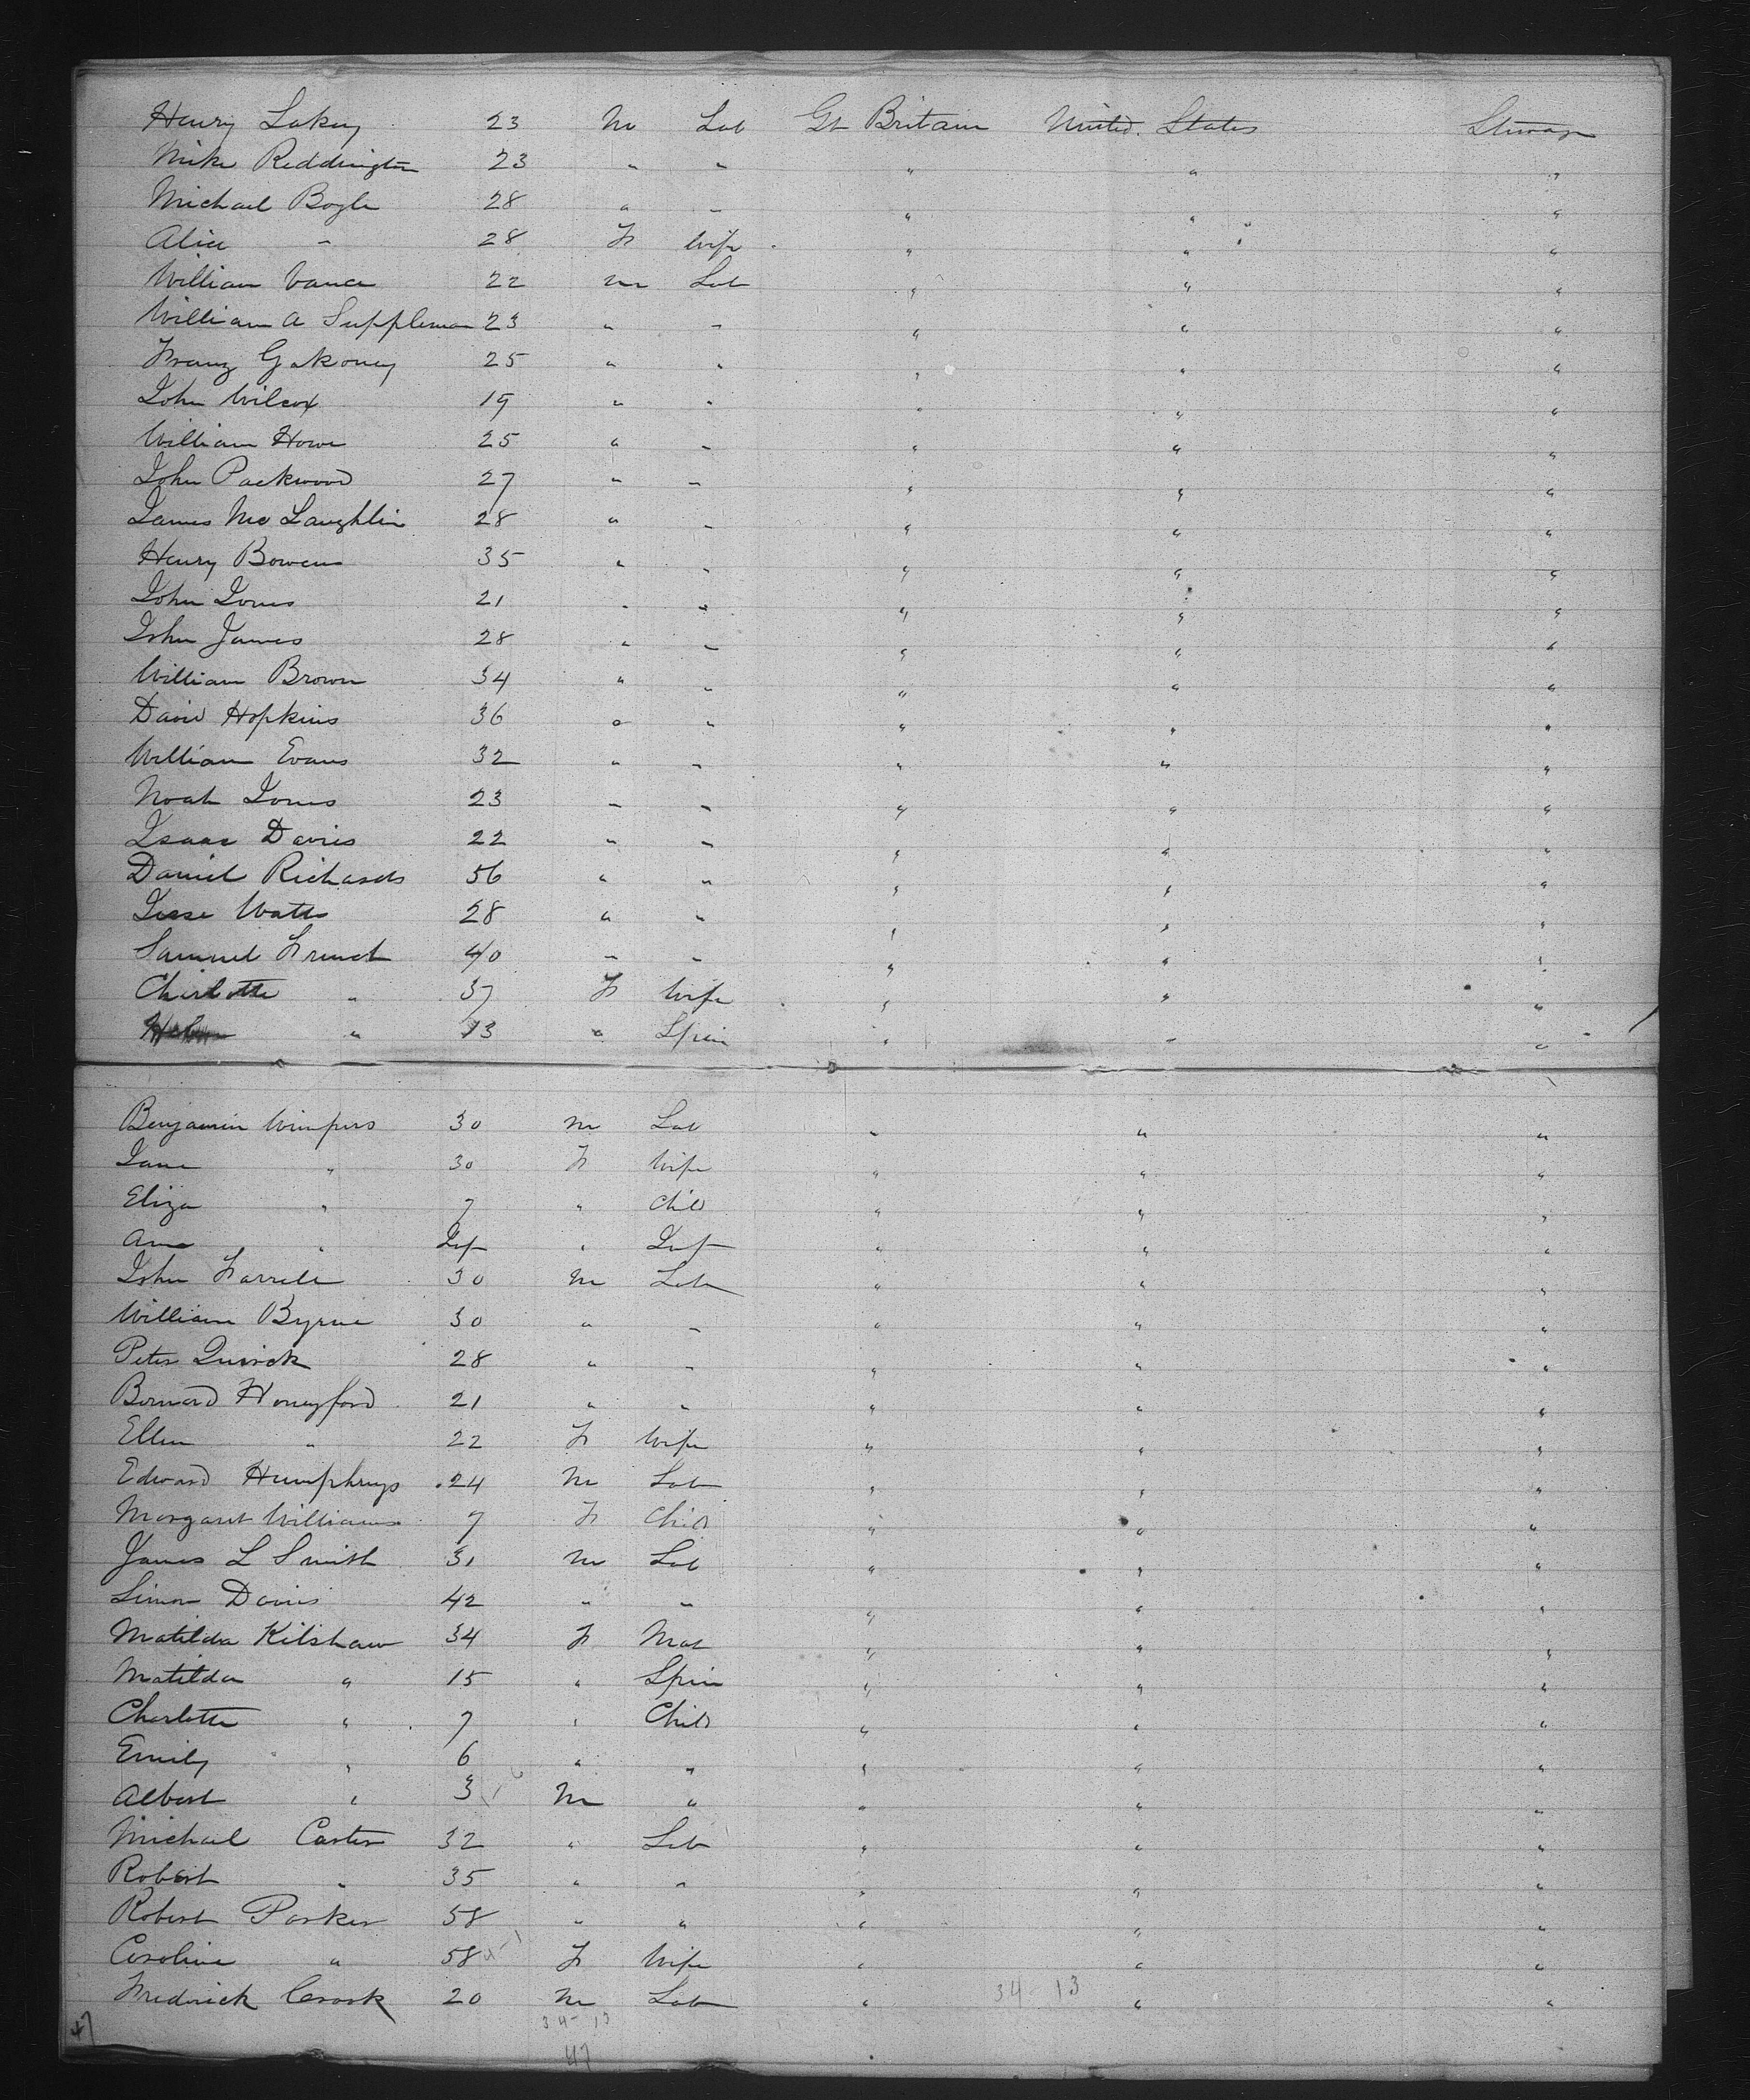 Henry Lakey 23 M Lab Gt Britain United States Steerage
Mike Reddington 23 " " " " "
Michael Boyle 28 " " " " "
Alice " 28 F Wife " " "
William Vance 22 M Lab " " "
William A Suppleman 23 " " " " "
Franz Gakoney 25 " " " " "
John Wilcox 19 " " " " "
William Howe 25 " " " " "
John Packwood 27 " " " " "
James McLaughlin 28 " " " " "
Henry Bowen 35 " " " " "
John Jones 21 " " " " "
John James 28 " " " " "
William Brown 34 " " " " "
David Hopkins 36 " " " " "
William Evans 32 " " " " "
Noah Jones 23 " " " " "
Isaac Davies 22 " " " " "
Daniel Richards 56 " " " " "
Jesse Watts 28 " " " " "
Samuel French 40 " " " " "
Charlotte " 37 F Wife " " "
" 13 " Spin " " "
Benjamin Wimpers 30 M Lab " " "
Jane " 30 F Wife " " "
Eliza " 7 " Child " " "
Ann " Inf " Inf " " "
John Farrell 30 M Lab " " "
William Byrne 30 " " " " "
Peter Quirck 28 " " " " "
Bernard Honeyford 21 " " " " "
Ellen " 22 F Wife " " "
Edward Humphreys 24 M Lab " " "
Margaret Williams 7 F Child " " "
James L Smith 31 M Lab " " "
Simon Davis 42 " " " " "
Matilda Kilshaw 34 F Mat " " "
Matilda " 15 " Spin " " "
Charlotte " 7 " Child " " "
Emily " 6 " " " " "
Albert " 3 M " " " "
Michael Carter 32 " Lab " " "
Robert " 35 " " " " "
Robert Parker 58 " " " " "
Caroline " 58 F Wife " " "
Fredrick Crook 20 M Lab " " "
34-13
34-13
47
47